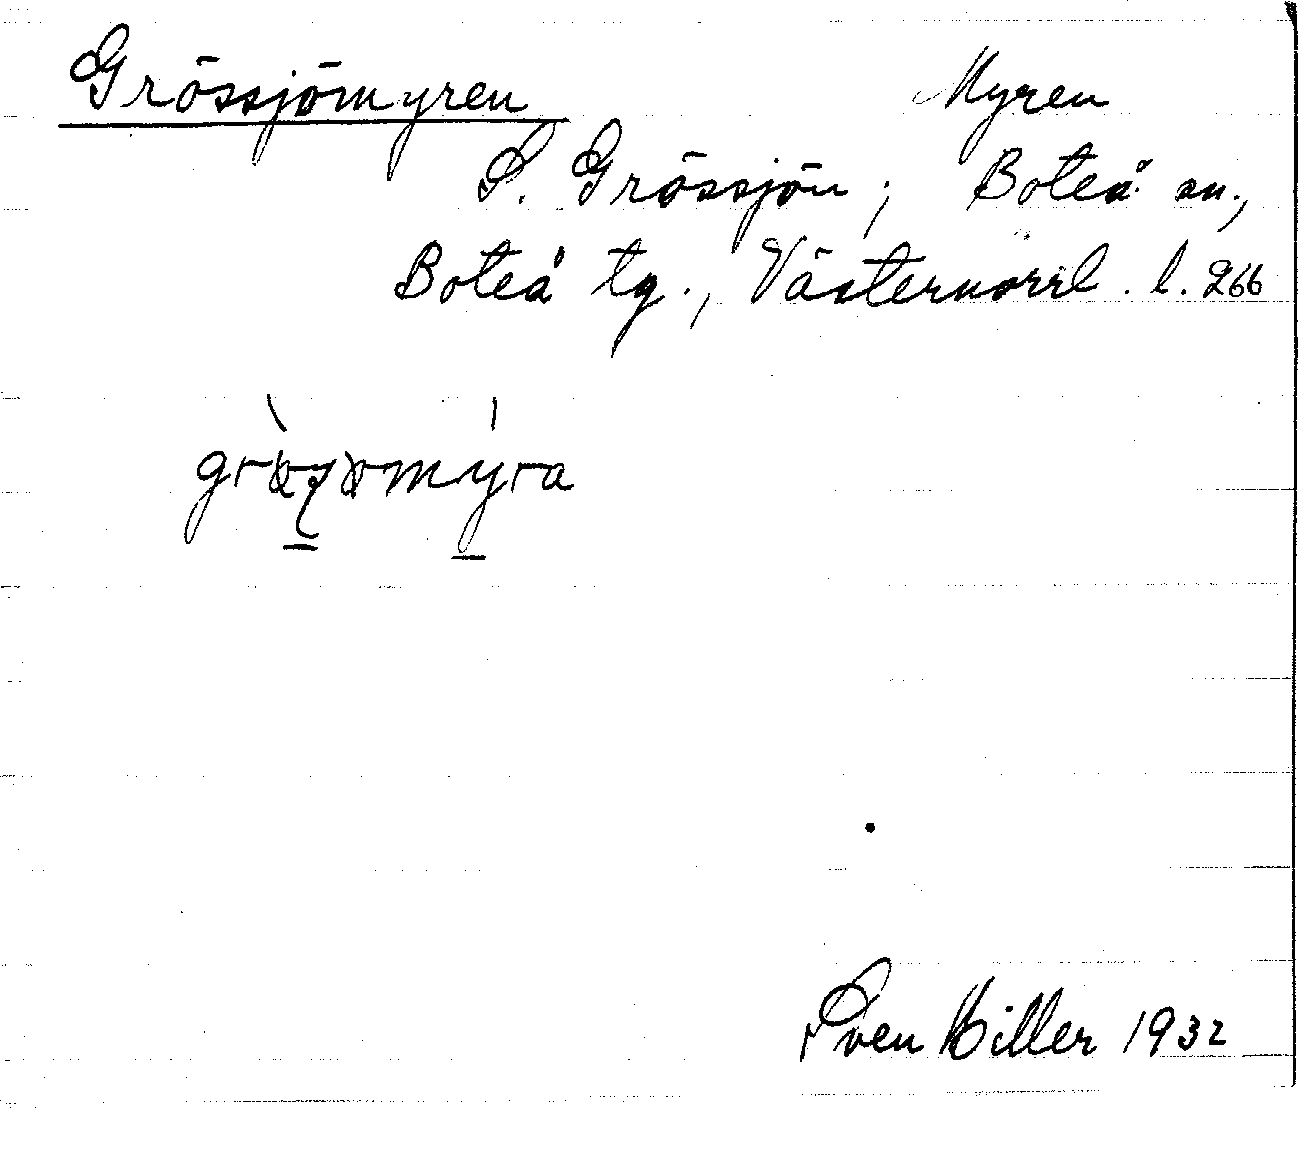 Grössjömyren Myren
S. Grössjön; Boteå sn.,
Boteå tg., Västernorrl. l. 266
Sven Hiller 1932